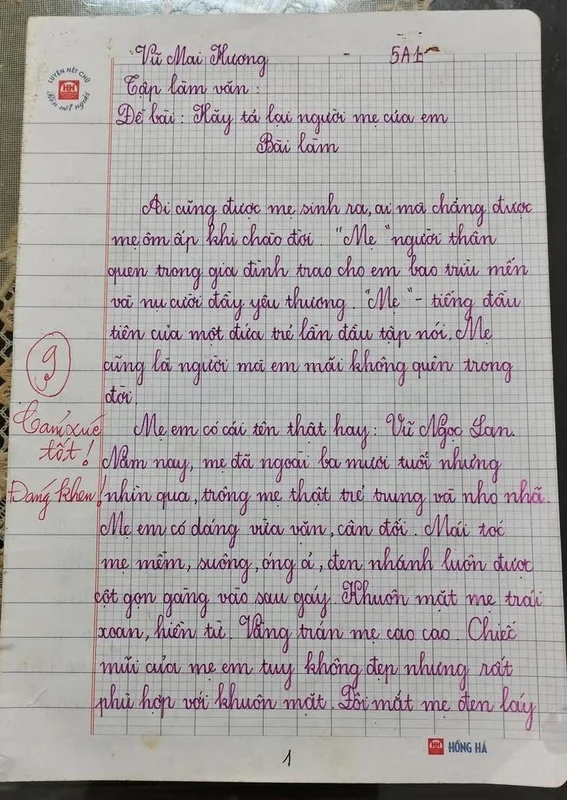 Vũ Mai Hương - 5A1
Tập làm văn :
Đề bài : Hãy tả lại người mẹ của em
Bài làm
LUYỆN NÉT CHỮ
HH
Rèn nết người
Ai cũng được mẹ sinh ra, ai mà chẳng được
mẹ ôm ấp khi chào đời. "Mẹ" người thân
quen trong gia đình trao cho em bao trìu mến
và nụ cười đầy yêu thương. "Mẹ" - tiếng đầu
tiên của một đứa trẻ lần đầu tập nói. Mẹ
cũng là người mà em mãi không quên trong
đời.
9
Cảm xúc
tốt!
Đáng khen!
Mẹ em có cái tên thật hay : Vũ Ngọc Lan.
Năm nay, mẹ đã ngoài ba mươi tuổi nhưng
nhìn qua, trông mẹ thật trẻ trung và nho nhã.
Mẹ em có dáng vừa vặn, cân đối. Mái tóc
mẹ mềm, suông, óng ả, đen nhánh luôn được
cột gọn gàng vào sau gáy. Khuôn mặt mẹ trái
xoan, hiền từ. Vầng trán mẹ cao cao. Chiếc
mũi của mẹ em tuy không đẹp nhưng rất
phù hợp với khuôn mặt. Đôi mắt mẹ đen láy
HH HỒNG HÀ
1